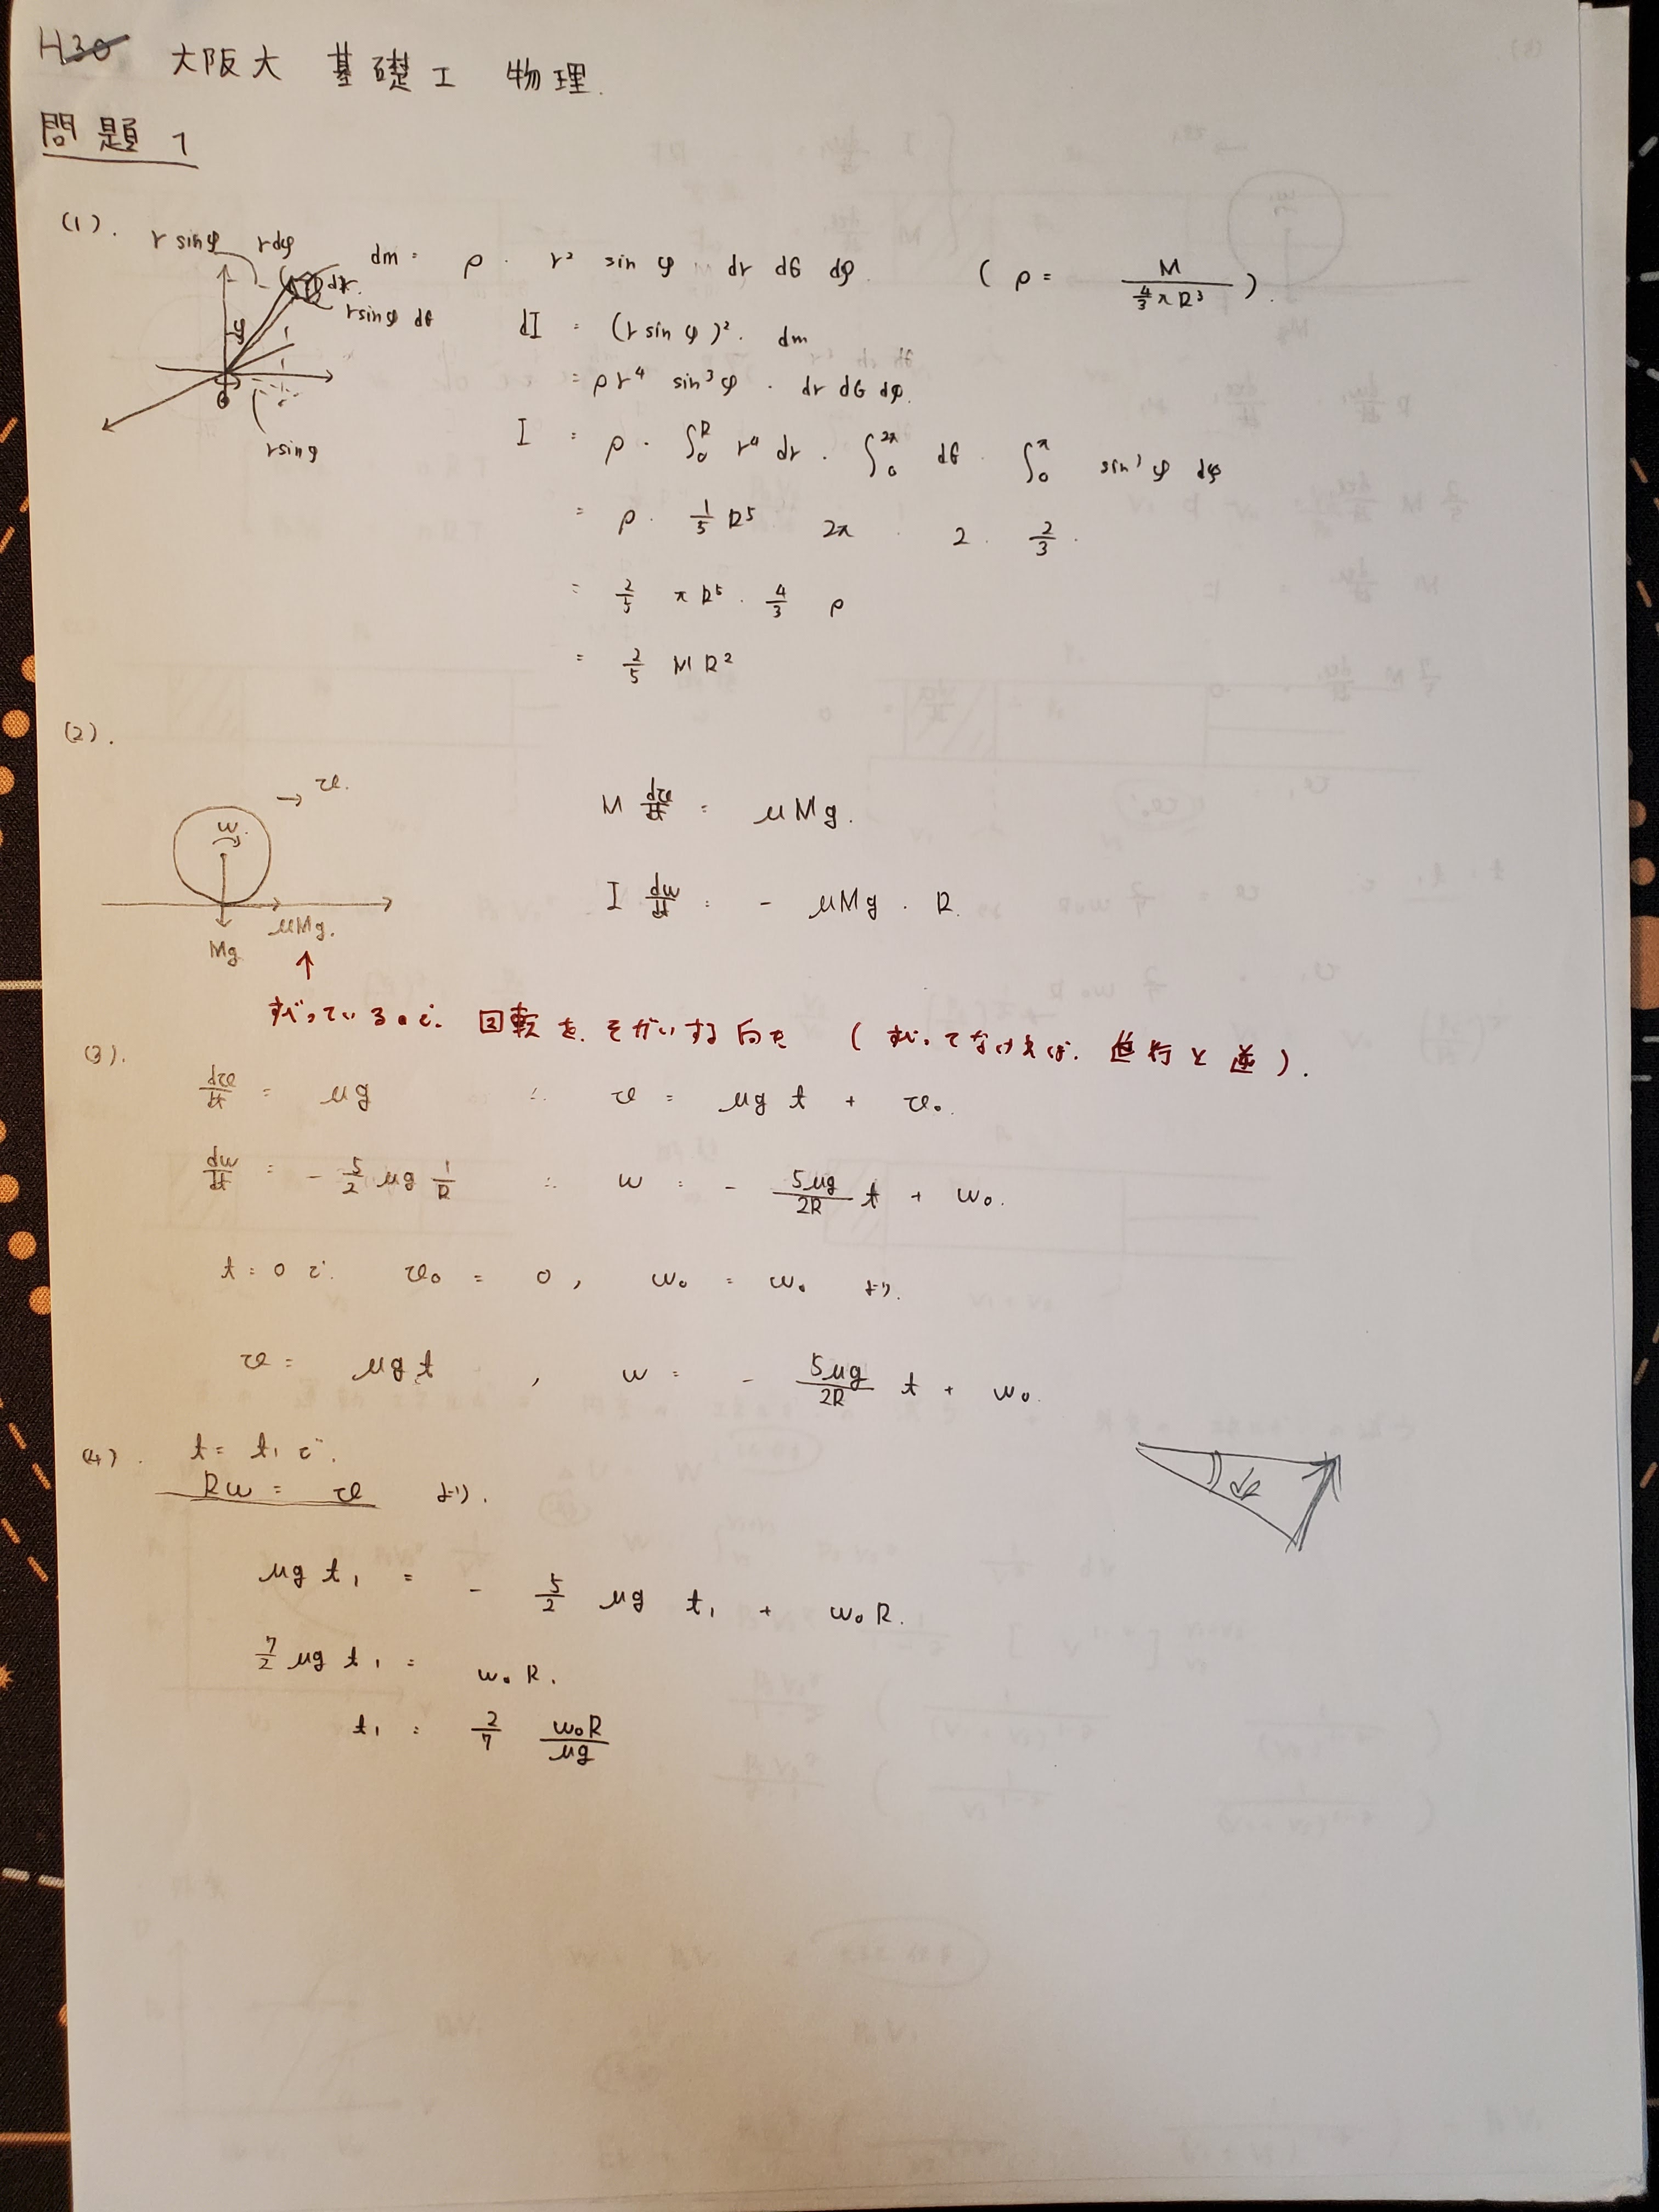 H30 大阪大 基礎工 物理.
問題 1
(1).
r sinφ rdφ
dr.
r sinφ dθ
φ
θ
r sinφ
dm = ρ · r² sin φ dr dθ dφ. ( ρ = M / (4/3 πR³) ).
dI = (r sin φ)² · dm
= ρ r⁴ sin³φ · dr dθ dφ.
I = ρ · ∫₀^R r⁴ dr · ∫₀^2π dθ · ∫₀^π sin³φ dφ
= ρ · 1/5 R⁵ 2π · 2 · 2/3 ·
= 2/5 πR⁵ · 4/3 ρ
= 2/5 MR²
(2).
→ v.
ω.
Mg
μMg.
M dv/dt = μMg.
I dω/dt = - μMg · R.
↑
すべっているので. 回転を.そがいする向き (すべってなければ. 進行と逆).
(3).
dv/dt = μg ∴ v = μg t + v₀.
dω/dt = - 5/2 μg 1/R ∴ ω = - 5μg/2R t + ω₀.
t = 0 で. v₀ = 0 , ω₀ = ω₀ より.
v = μg t , ω = - 5μg/2R t + ω₀.
(4). t = t₁ で.
Rω = v より.
μg t₁ = - 5/2 μg t₁ + ω₀R.
7/2 μg t₁ = ω₀R.
t₁ = 2/7 ω₀R/μg